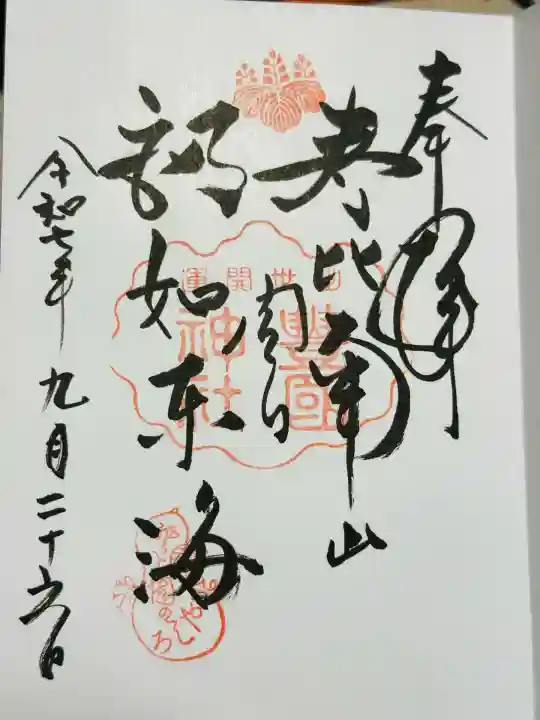 奉拝
寿比南山
閏日
福如東海
令和七年 九月二十六日
出世開運
豊國
神社